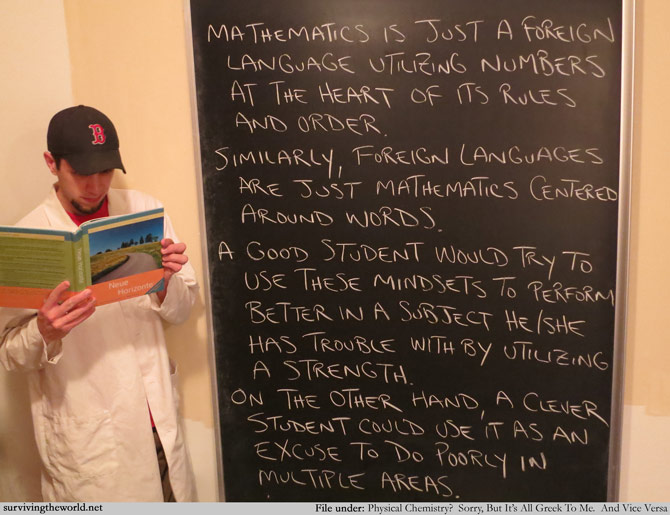 MATHEMATICS IS JUST A FOREIGN
LANGUAGE UTILIZING NUMBERS
AT THE HEART OF ITS RULES
AND ORDER.
SIMILARLY, FOREIGN LANGUAGES
ARE JUST MATHEMATICS CENTERED
AROUND WORDS.
A GOOD STUDENT WOULD TRY TO
USE THESE MINDSETS TO PERFORM
BETTER IN A SUBJECT HE/SHE
HAS TROUBLE WITH BY UTILIZING
A STRENGTH.
ON THE OTHER HAND, A CLEVER
STUDENT COULD USE IT AS AN
EXCUSE TO DO POORLY IN
MULTIPLE AREAS.
B
Neue
Horizonte
survivingtheworld.net
File under: Physical Chemistry? Sorry, But It's All Greek To Me. And Vice Versa